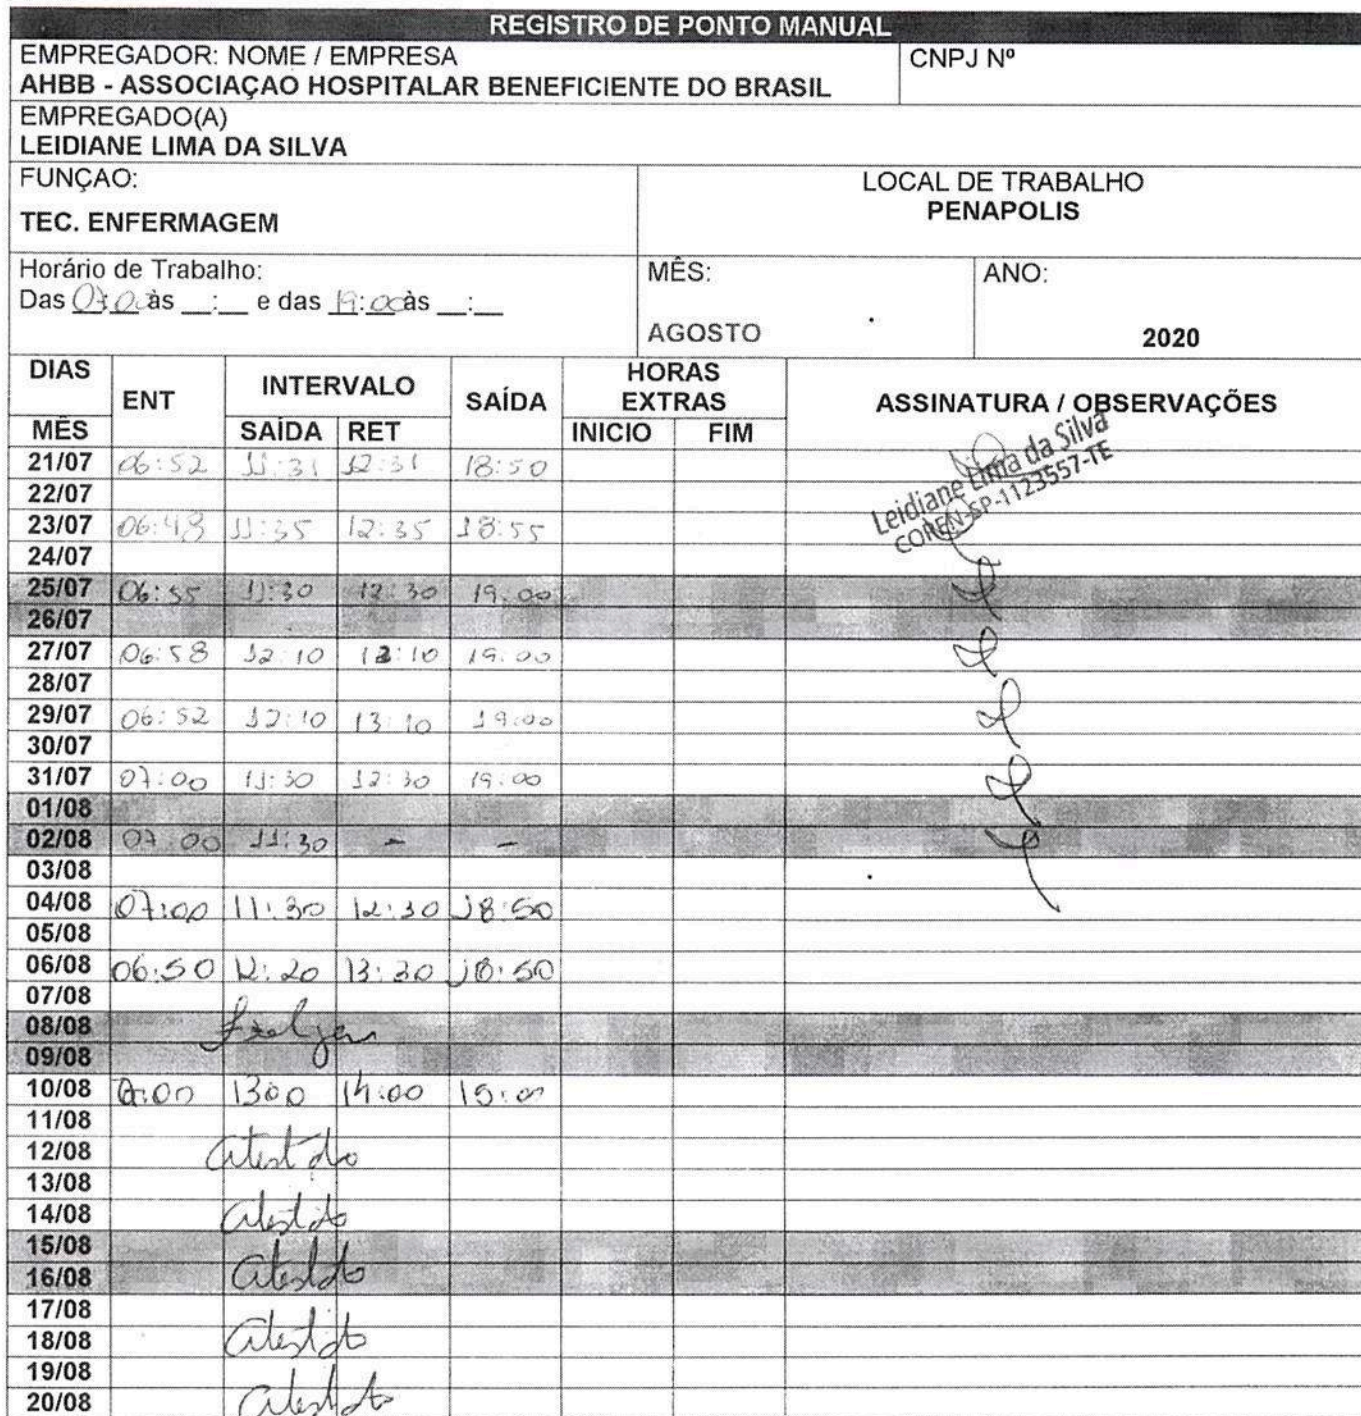 REGISTRO DE PONTO MANUAL
EMPREGADOR: NOME / EMPRESA
AHBB - ASSOCIAÇAO HOSPITALAR BENEFICIENTE DO BRASIL
CNPJ Nº
EMPREGADO(A)
LEIDIANE LIMA DA SILVA
FUNÇAO:
TEC. ENFERMAGEM
LOCAL DE TRABALHO
PENAPOLIS
Horário de Trabalho:
Das 07:00 às __:__ e das 19:00 às __:__
MÊS:
AGOSTO
ANO:
2020
DIAS MÊS ENT INTERVALO SAÍDA RET SAÍDA HORAS EXTRAS INICIO FIM ASSINATURA / OBSERVAÇÕES
Leidiane Lima da Silva
COREN-SP-1123557-TE
21/07 06:52 11:31 12:31 18:50
22/07
23/07 06:48 11:35 12:35 18:55
24/07
25/07 06:55 11:30 12:30 19:00
26/07
27/07 06:58 12:10 13:10 19:00
28/07
29/07 06:52 12:10 13:10 19:00
30/07
31/07 07:00 11:30 12:30 19:00
01/08
02/08 07:00 11:30 - -
03/08
04/08 07:00 11:30 12:30 18:50
05/08
06/08 06:50 12:20 13:20 18:50
07/08
08/08
09/08
10/08 13:00 14:00 15:00
11/08
12/08 atestado
13/08
14/08 atestado
15/08
16/08 atestado
17/08
18/08 atestado
19/08
20/08 atestado